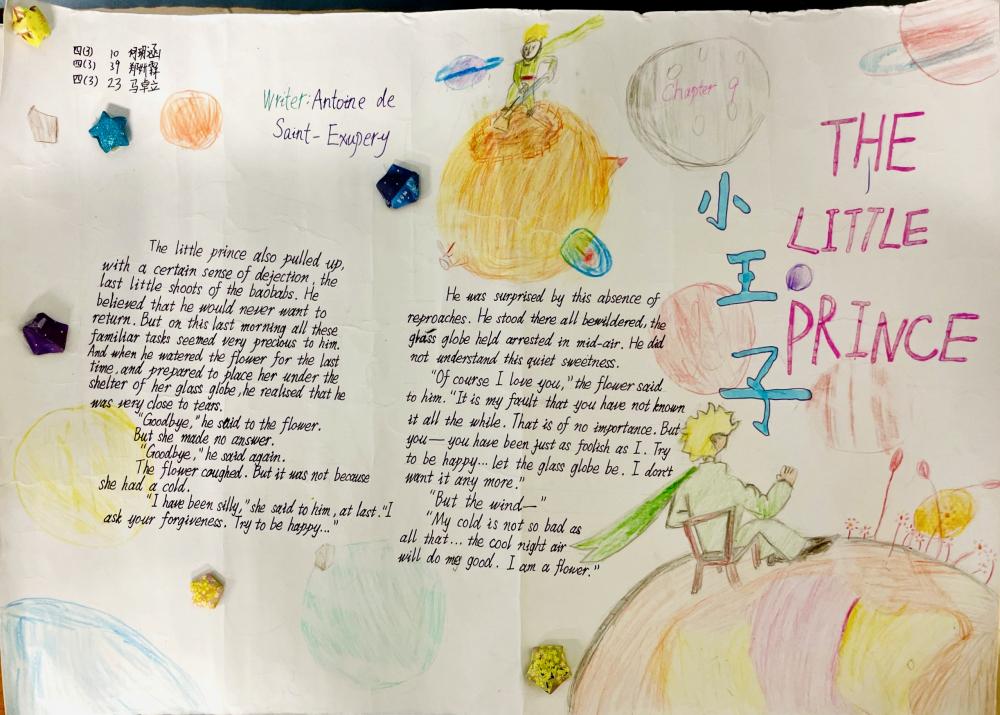 四(3) 10
四(3) 39
四(3) 23 马卓立
Writer: Antoine de
Saint-Exupery
Chapter 9
THE
LITTLE
PRINCE
小
王
子
The little prince also pulled up,
with a certain sense of dejection, the
last little shoots of the baobabs. He
believed that he would never want to
return. But on this last morning all these
familiar tasks seemed very precious to him.
And when he watered the flower for the last
time, and prepared to place her under the
shelter of her glass globe, he realised that he
was very close to tears.
"Goodbye," he said to the flower.
But she made no answer.
"Goodbye," he said again.
The flower coughed. But it was not because
she had a cold.
"I have been silly," she said to him, at last. "I
ask your forgiveness. Try to be happy..."
He was surprised by this absence of
reproaches. He stood there all bewildered, the
glass globe held arrested in mid-air. He did
not understand this quiet sweetness.
"Of course I love you," the flower said
to him. "It is my fault that you have not known
it all the while. That is of no importance. But
you—you have been just as foolish as I. Try
to be happy... let the glass globe be. I don't
want it any more."
"But the wind—"
"My cold is not so bad as
all that... the cool night air
will do me good. I am a flower."